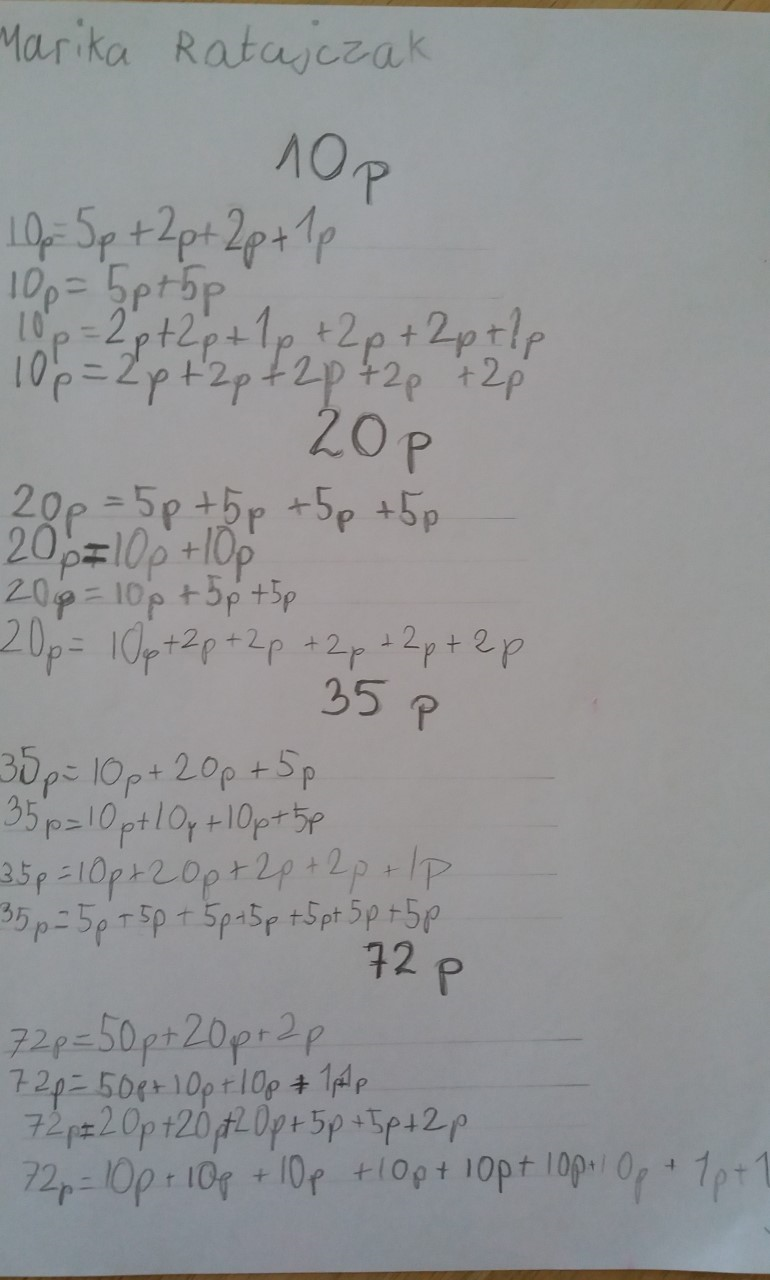 Marika Ratajczak
10p
10p=5p+2p+2p+1p
10p= 5p+5p
10p=2p+2p+1p+2p+2p+1p
10p=2p+2p+2p+2p +2p
20p
20p=5p+5p+5p+5p
20p=10p+10p
20p=10p+5p+5p
20p= 10p+2p+2p+2p+2p+2p
35p
35p=10p+20p+5p
35p=10p+10p+10p+5p
35p=10p+20p+2p+2p+1p
35p=5p+5p+5p+5p+5p+5p+5p
72p
72p=50p+20p+2p
72p=50p+10p+10p+1p+1p
72p=20p+20p+20p+5p+5p+2p
72p=10p+10p+10p+10p+10p+10p+10p+1p+1